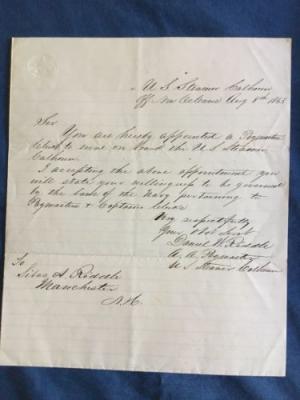 U S Steamer Calhoun
Off New Orleans Aug 8th
Sir
You are hereby appointed a Paymasters
Clerk to serve on board the U S Steamer
Calhoun.
I accepting the above appointment you
will state your willingness to be governed
by the laws of the Navy pertaining to
Paymasters & Captains Clerks
Very respectfully
Your Obdt Servt
Daniel W. Riddle
A. A. Paymaster
U S Steamer Calhoun
To
Silas A. Riddle
Manchester
N.H.